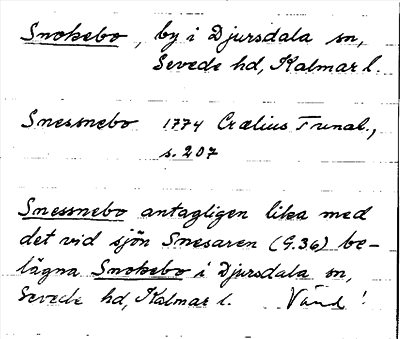 Snokebo, by i Djursdala sn,
Sevede hd, Kalmar l.
Snessnebo 1774 Crælius Tunal.,
s. 207
Snessnebo antagligen lika med
det vid sjön Snesaren (G.36) be-
lägna Snokebo i Djursdala sn,
Sevede hd, Kalmar l. Vänd!